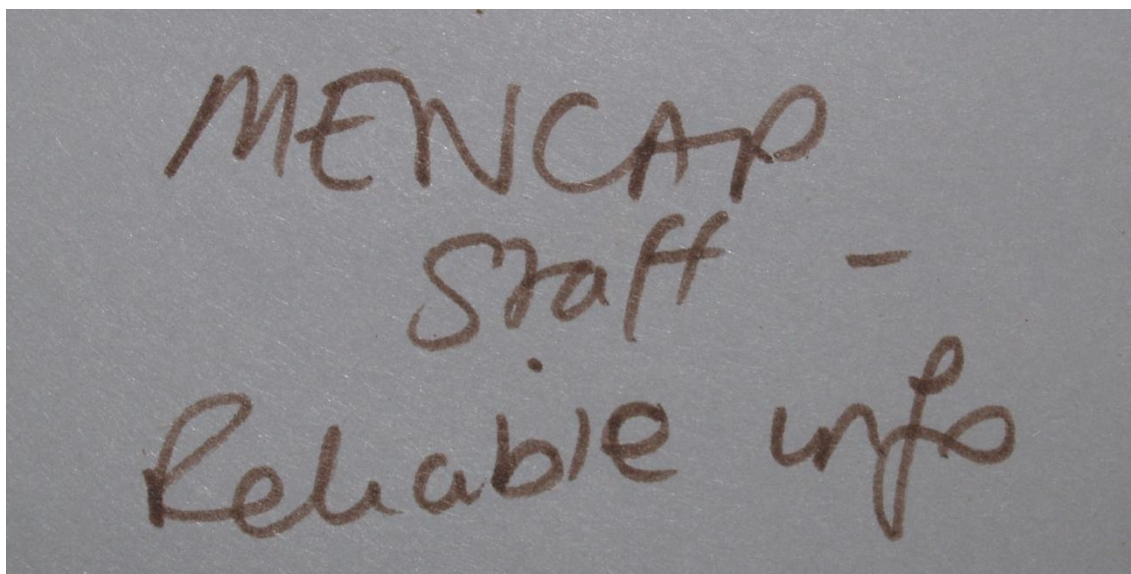 MENCAP
Staff -
Reliable info